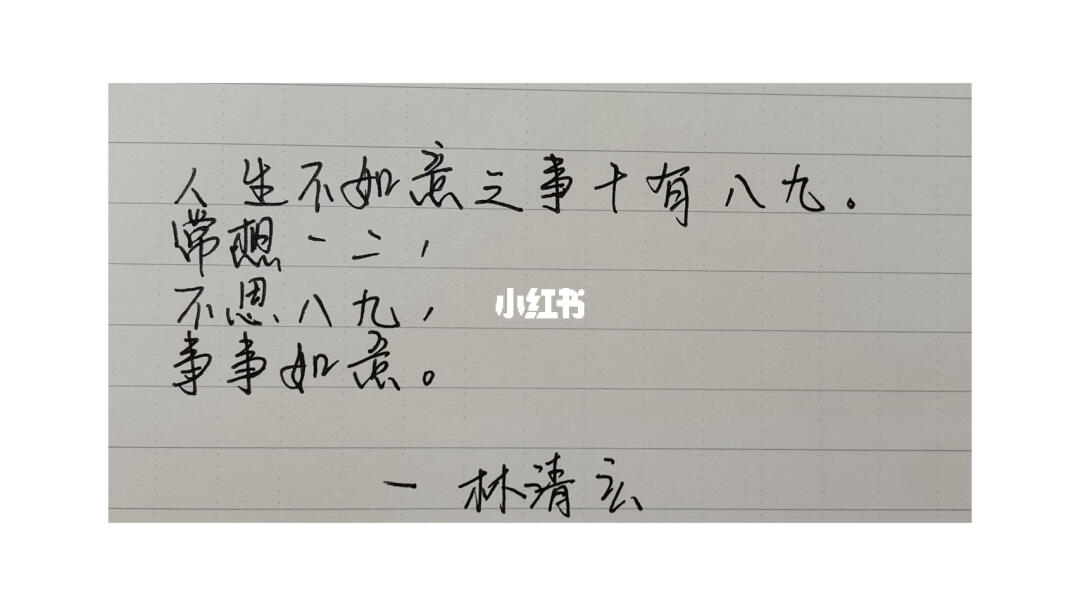 人生不如意之事十有八九。
常想一二，
不思八九，
小红书
事事如意。
— 林清玄